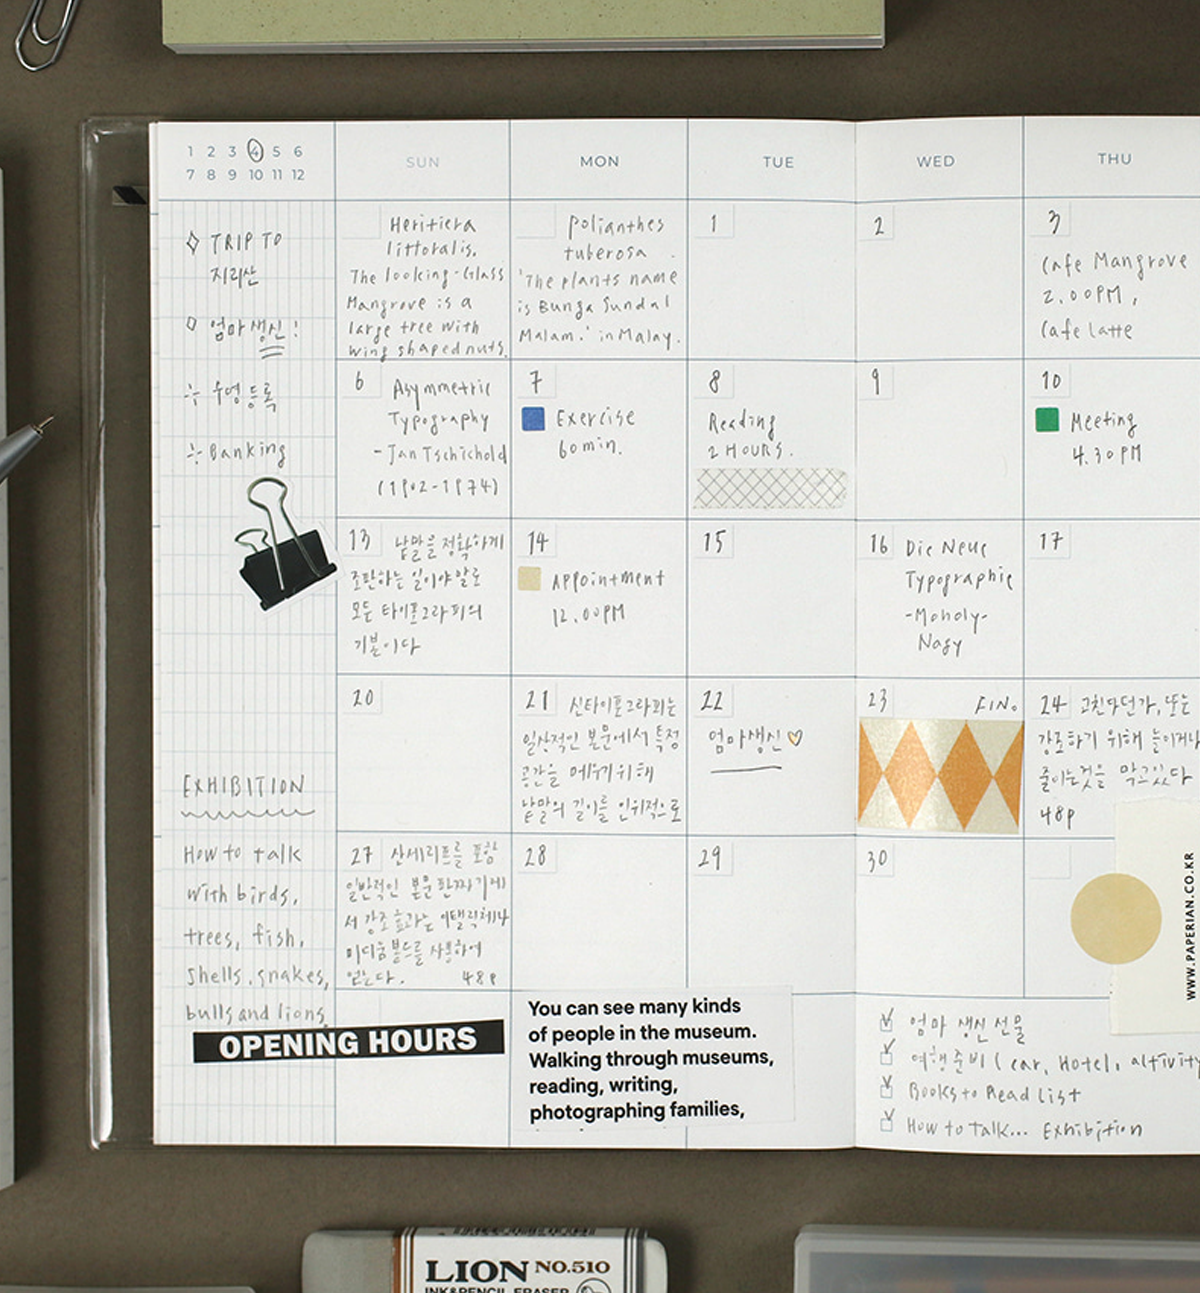 1 2 3 4 5 6
7 8 9 10 11 12
SUN
MON
TUE
WED
THU
TRIP TO
지리산
엄마생신!
수영등록
Banking
EXHIBITION
How to talk
with birds,
trees, fish,
shells, snakes,
bulls and lions
OPENING HOURS
Heritiera
littoralis.
The looking-Glass
Mangrove is a
large tree with
wing shaped nuts.
Polianthes
tuberosa
'The plants name
is Bunga Sundal
Malam.' in Malay.
1
2
3
Cafe Mangrove
2.00PM,
Cafe Latte
6 Asymmetric
Typography
-Jan Tschichold
(1902-1974)
7
Exercise
60min.
8
Reading
2 HOURS.
9
10
Meeting
4.30PM
13 낱말을 정확하게
조판하는 일이야말로
모든 타이포그라피의
기본이다
14
Appointment
12.00PM
15
16 Die Neue
Typographie
-Moholy-
Nagy
17
20
21 신타이포그라피는
일상적인 본문에서 특정
공간을 메우기위해
낱말의 길이를 인위적으로
22
엄마생신
23 FIN.
24 고친다던가, 또는
강조하기 위해 늘이거나
줄이는것을 막고있다
48p
27 산세리프를 포함
일반적인 본문 판짜기에
서 강조 효과는 이탤릭체나
미디움 본드를 사용하여
얻는다. 48p
28
29
30
You can see many kinds
of people in the museum.
Walking through museums,
reading, writing,
photographing families,
엄마 생신 선물
여행준비 (car, Hotel, altivity
Books to Read List
How to talk... Exhibition
WWW.PAPERIAN.CO.KR
LION NO.510
INK&PENCIL ERASER